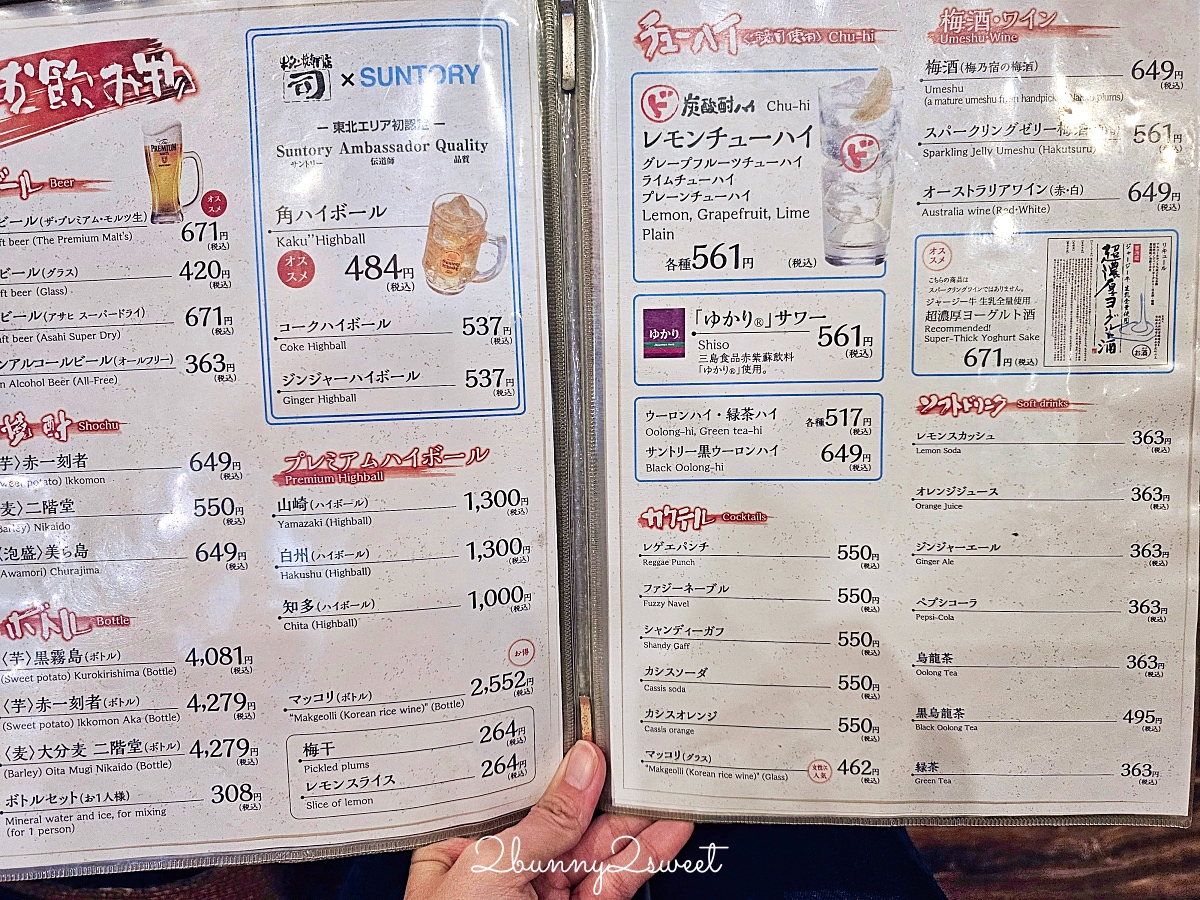 お飲み物
ビール Beer
ビール(ザ・プレミアム・モルツ生) 671円(税込)
ft beer (The Premium Malt's)
オススメ
ビール(グラス) 420円(税込)
ft beer (Glass)
ビール(アサヒ スーパードライ) 671円(税込)
aft beer (Asahi Super Dry)
ンアルコールビール(オールフリー) 363円(税込)
n Alcohol Beer (All-Free)
焼酎 Shochu
芋〉赤一刻者 649円(税込)
weet potato) Ikkomon
麦〉二階堂 550円(税込)
Barley) Nikaido
〈泡盛〉美ら島 649円(税込)
(Awamori) Churajima
ボトル Bottle
〈芋〉黒霧島(ボトル) 4,081円(税込)
(Sweet potato) Kurokirishima (Bottle)
〈芋〉赤一刻者(ボトル) 4,279円(税込)
(Sweet potato) Ikkomon Aka (Bottle)
〈麦〉大分麦 二階堂(ボトル) 4,279円(税込)
(Barley) Oita Mugi Nikaido (Bottle)
ボトルセット(お1人様) 308円(税込)
Mineral water and ice, for mixing
(for 1 person)
司 × SUNTORY
― 東北エリア初認定 ―
Suntory Ambassador Quality
サントリー 伝道師 品質
角ハイボール
Kaku"Highball
オススメ 484円(税込)
コークハイボール 537円(税込)
Coke Highball
ジンジャーハイボール 537円(税込)
Ginger Highball
プレミアムハイボール
Premium Highball
山崎(ハイボール) 1,300円(税込)
Yamazaki (Highball)
白州(ハイボール) 1,300円(税込)
Hakushu (Highball)
知多(ハイボール) 1,000円(税込)
Chita (Highball)
お得
マッコリ(ボトル) 2,552円(税込)
"Makgeolli (Korean rice wine)" (Bottle)
梅干 264円(税込)
Pickled plums
レモンスライス 264円(税込)
Slice of lemon
チューハイ Chu-hi
ド 炭酸酎ハイ Chu-hi
レモンチューハイ
グレープフルーツチューハイ
ライムチューハイ
プレーンチューハイ
Lemon, Grapefruit, Lime
Plain
各種561円 (税込)
ゆかり
「ゆかり®」サワー 561円(税込)
Shiso
三島食品赤紫蘇飲料
「ゆかり®」使用。
ウーロンハイ・緑茶ハイ 各種517円(税込)
Oolong-hi, Green tea-hi
サントリー黒ウーロンハイ 649円(税込)
Black Oolong-hi
カクテル Cocktails
レゲエパンチ 550円(税込)
Reggae Punch
ファジーネーブル 550円(税込)
Fuzzy Navel
シャンディーガフ 550円(税込)
Shandy Gaff
カシスソーダ 550円(税込)
Cassis soda
カシスオレンジ 550円(税込)
Cassis orange
マッコリ(グラス) 女性に人気 462円(税込)
"Makgeolli (Korean rice wine)" (Glass)
梅酒・ワイン
Umeshu·Wine
梅酒(梅乃宿の梅酒) 649円(税込)
Umeshu
(a mature umeshu from handpicked plums)
スパークリングゼリー梅酒 561円(税込)
Sparkling Jelly Umeshu (Hakutsuru)
オーストラリアワイン(赤・白) 649円(税込)
Australia wine (Red·White)
オススメ
こちらの商品は
スパークリングワインではありません。
ジャージー牛 生乳全量使用
超濃厚ヨーグルト酒
Recommended!
Super-Thick Yoghurt Sake
671円(税込)
リキュール
ジャージー牛 生乳全量使用
超濃厚ヨーグルト酒
お酒
ソフトドリンク Soft drinks
レモンスカッシュ 363円(税込)
Lemon Soda
オレンジジュース 363円(税込)
Orange Juice
ジンジャーエール 363円(税込)
Ginger Ale
ペプシコーラ 363円(税込)
Pepsi-Cola
烏龍茶 363円(税込)
Oolong Tea
黒烏龍茶 495円(税込)
Black Oolong Tea
緑茶 363円(税込)
Green Tea
2bunny2sweet